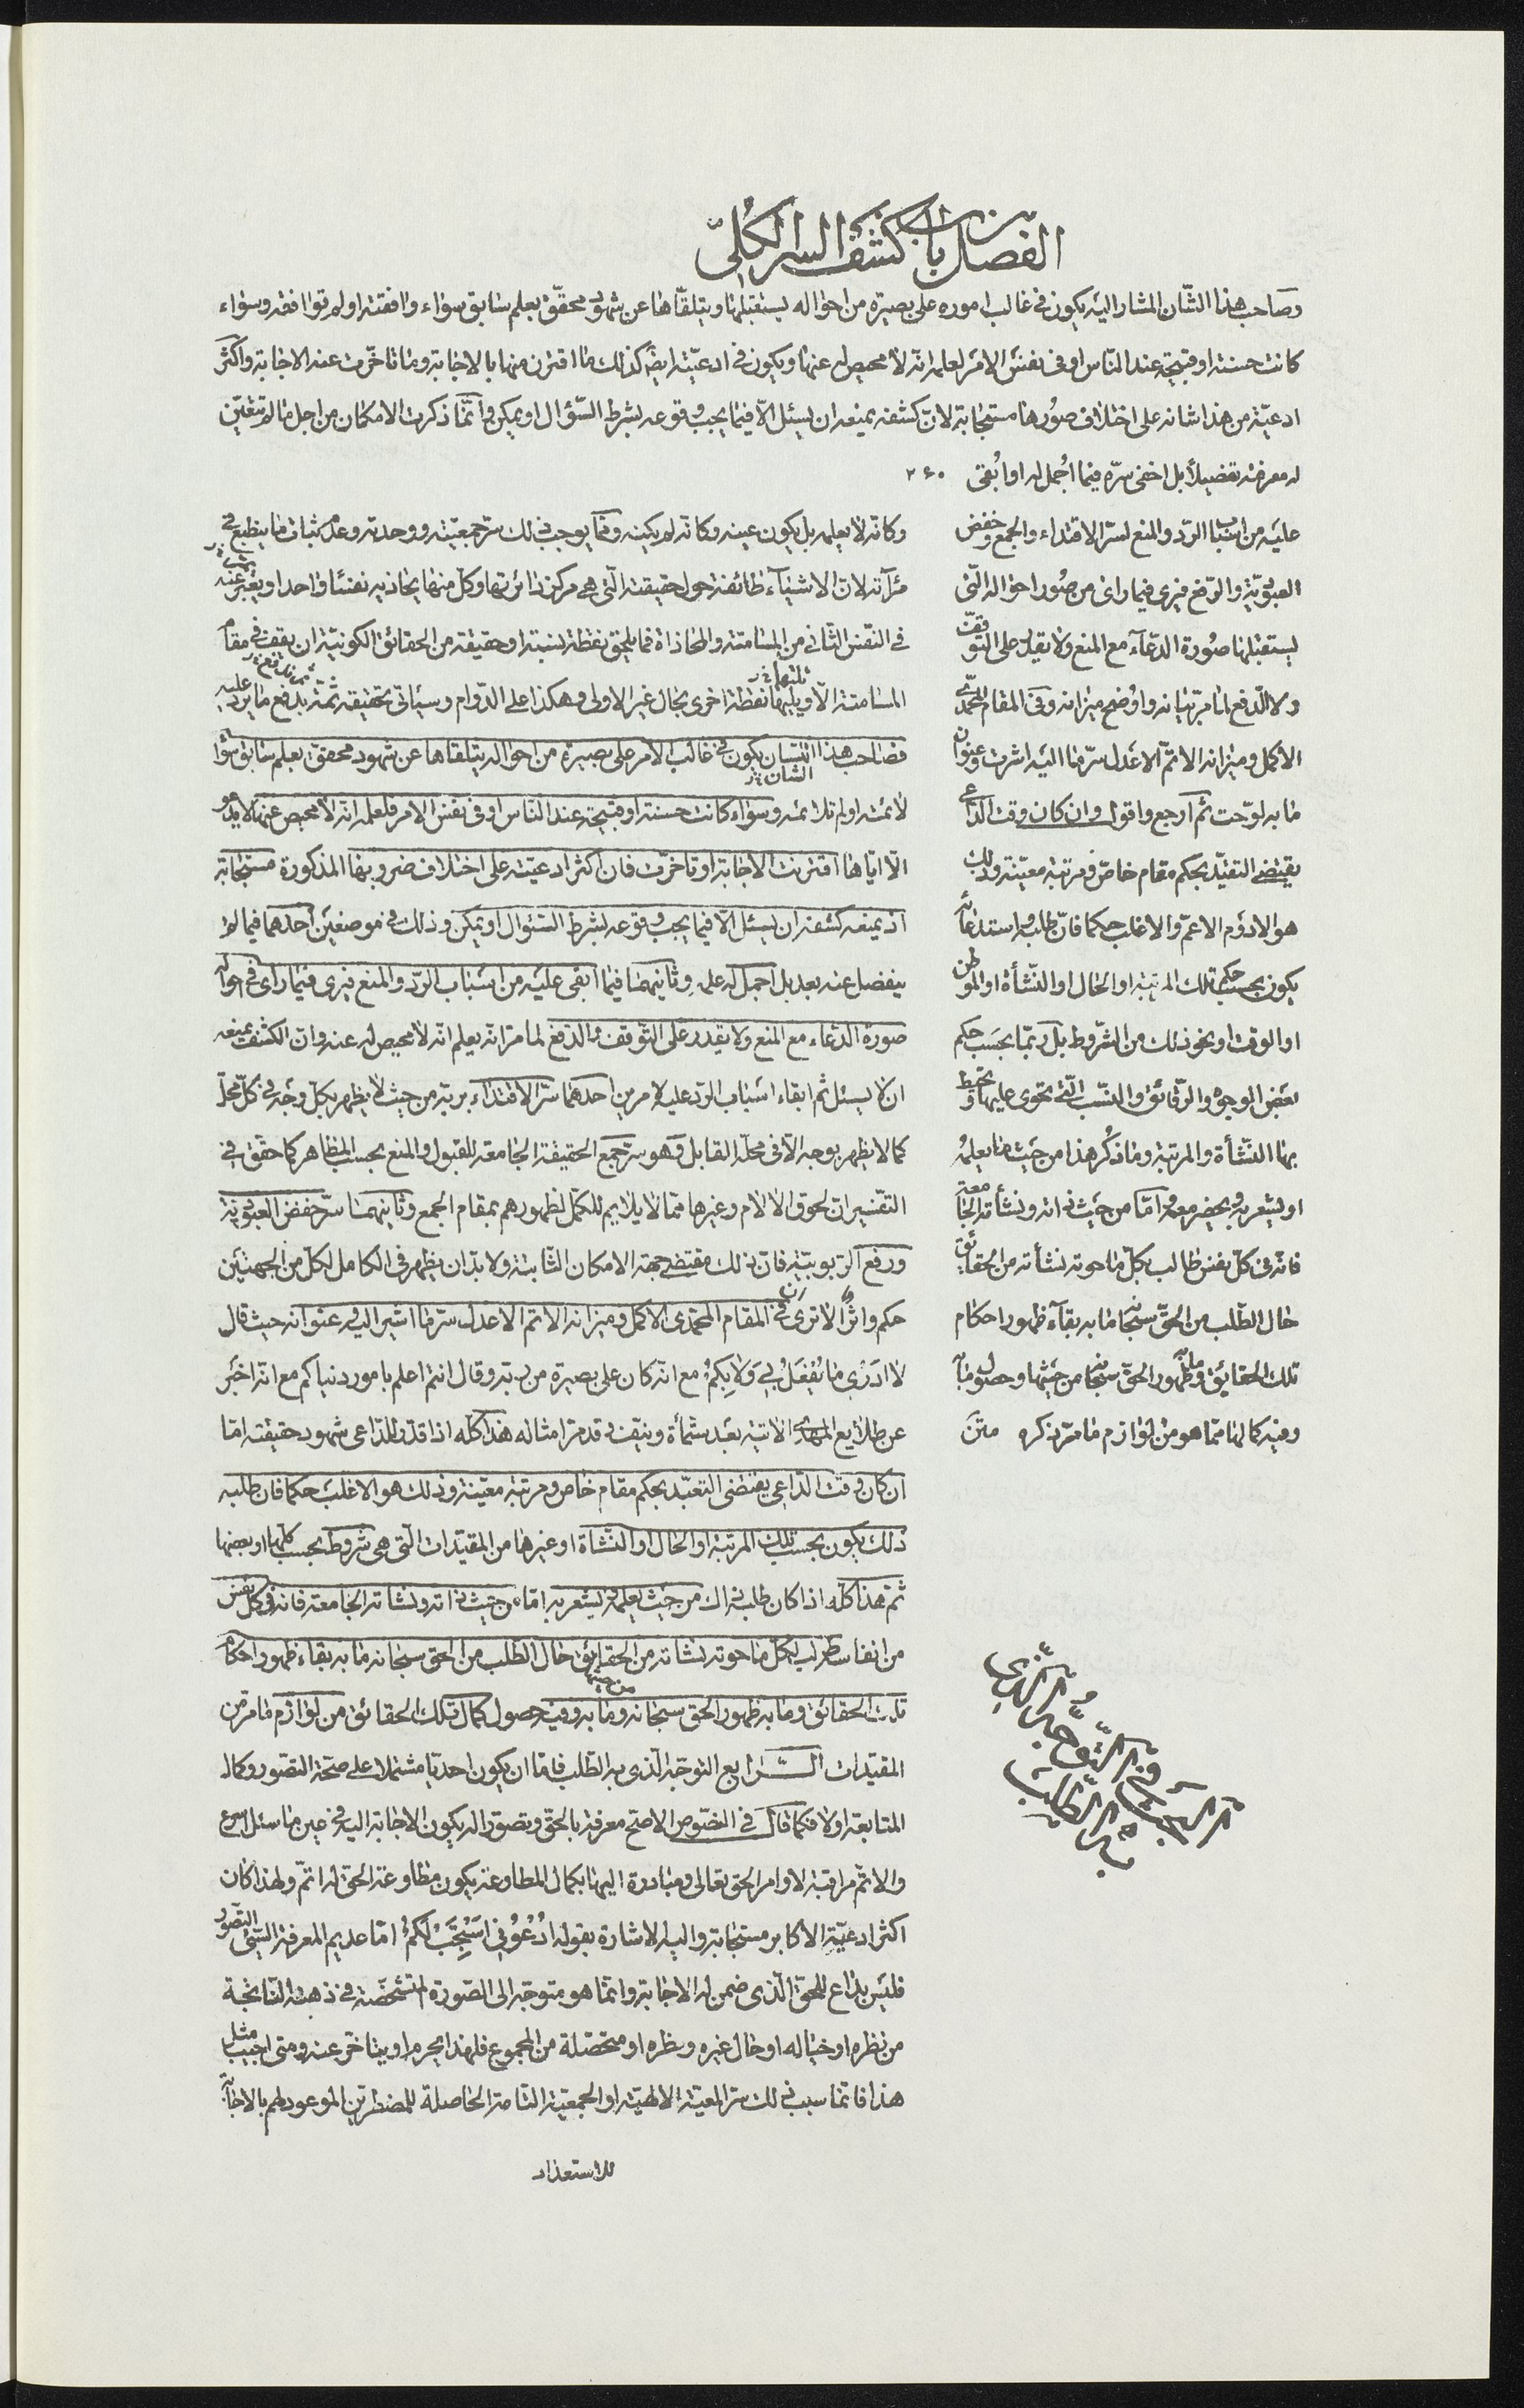 الفصل من باب كشف السر الكلّي
وصاحب هذا الشّان المشار اليه يكون في غالب اموره على بصيرة من احواله يستقبلها ويتلقّاها عن شهود محقّق بعلم سابق سواء وافقته اولم توافقه وسواء
كانت حسنة او قبيحة عند النّاس او في نفس الامر لعلمه انّه لا محيص له عنها ويكون في ادعيته ايضً كذلك ما اقترن منها بالاجابة وما تاخّرت عنه الاجابة واكثر
ادعيّة من هذا شانه على اختلاف صورها مستجابة لانّ كشفه يمنعه ان يسئل الّا فيما يجب وقوعه بشرط السّؤال او يمكن وانّما ذكرت الامكان من اجل ما لم تتعيّن
له معرفته تفصيلاً بل اخفى سرّه فيما اُجمل له او اُبقى ٢٤٠
عليه من اسباب الردّ والمنع لسرّ الاقتداء والجمع وخفض
العبوديّة والرّفع فيرى فيما راى من صُور احواله الّتى
يستقبلها صُورة الدّعاء مع المنع ولا يقدر على التوقّف
ولا الدّفع لما مرّ بيانه واوضح ميزانه وفى المقام المحمّدىّ
الاكمل وميزانه الاتمّ الاعدل سرّ ما اليه اشرت وعنوان
ما به لوّحت ثم ارجع واقول وان كان وقت الدّاعى
يقتضى التقيّد بحكم مقام خاصّ ومرتبة معيّنة وذلك
هو الادوَم الاعمّ والاغلب حكما فانّ طلبه واستدعاءَه
يكون بحسب حكم تلك المرتبة او الحال او النّشأة او الموطن
او الوقت او نحو ذلك من الشّروط بل ربّما بحسَب حكم
بعض الوجوه والرّقائق والنّسب الّتى تحوى عليها وتحيط
بها النّشأة والمرتبة وما ذُكر هذا من حيث ما يعلمُه
او يشعر به ويحضر معه وامّا من حيث ذاته ونشأته الجامعة
فانّه فى كلّ نفس طالب بكلّ ما حوته نشأته من الحقائق
حال الطّلب من الحقّ سبحانه ما به بقاء ظهور احكام
تلك الحقايق وظهور الحقّ سبحانه من حيثها وحصول ما به
وفيه كمالها ممّا هو من لوازم ما مرّ ذكره متن
وكانّه لا يعلمه بل يكون عينه وكانّه لم يكينه وممّا يوجب ذلك سرّ جمعيّته ووحدته وعدم ثبات ما ينطبع فى
مرآته لانّ الاشياء طائفة حول حقيقته الّتى هى مركز دائرتها وكلّ منها يحاذيه نفسًا واحدا ويتغيّر عنه
فى النّفس الثّانى من المسامتة والمحاذاة فما يلحق نقطة نسبة او حقيقة من الحقائق الكونيّة ان يقف فى مقام
المسامتة الّا ويليها نقطة اخرى بحال غير الاولى وهكذا على الدّوام وسيأتى تحقيقه ثمّة بدفع ما يرد عليه
فصاحب هذا الشان يكون فى غالب الامر على بصيرة من احواله يتلقاها عن شهود محقّق بعلم سابق سواء
لائمته اولم تلائمه وسواء كانت حسنة او قبيحة عند النّاس او فى نفس الامر فلعلمه انّه لا محيص عنها لا يدعو
الّا ايّاها اقترنت الاجابة او تاخرّت فان اكثر ادعيته على اختلاف ضروبها المذكورة مستجابة
اذ يمنعه كشفه ان يسئل الّا فيما يجب وقوعه بشرط السّئوال او يمكن وذلك فى موضعين احدهما فيما لم
ينفصل عنه بعد بل اجمل له علمه وثانيهما فيما ابقى عليه من اسباب الردّ والمنع فيرى فيما راى فى احواله
صورة الدّعاء مع المنع ولا يقدر على التّوقف والدّفع لما مرّ انّه يعلم انّه لا محيص له عنه وانّ الكشف يمنعه
ان لا يسئل ثم ابقاء اسباب الردّ عليه لامرين احدهما سرّ الاقتداء بربّه من حيث لا يظهر بكلّ وجه فى كلّ محلّ
كما لا يظهر بوجه الّا فى محلّه القابل وهو سرّ جمع الحقيقة الجامعة للقبول والمنع بحسب المظاهر كما حقّق فى
التفسير انّ لحوق الالام وغيرها ممّا لا يلايم للكمّل لظهورهم بمقام الجمع وثانيهما سرّ خفض العبوديّة
ورفع الرّبوبيّة فانّ ذلك مقتضى جهة الامكان الثّابتة ولا بدّ ان يظهر فى الكامل لكلّ من الجهتين
حكم واثر الا ترى انّ فى المقام المحمّدى الاكمل وميزانه الاتم الاعدل سرّ ما اشير اليه وعنوانه حيث قال
لا ادرى ما يُفعَل بى وَلا بِكمْ مع انّه كان على بصيرة من ربّه وقال انتم اعلم بامور دنياكم مع انّه اخبر
عن طلايع المهدىّ الاتية بعد ستمأة ونيف وقد مرّ امثاله هذا كلّه اذا قدّر للدّاعى شهود حقيقته امّا
ان كان وقت الدّاعى يقتضى التعبّد بحكم مقام خاص ومرتبة معيّنة وذلك هو الاغلب حكما فان طلبه
ذلك يكون بحسب تلك المرتبة او الحال او النّشأة او غيرها من المقيّدات الّتى هى شروط بحسب كلّها او بعضها
ثمّ هذا كلّه اذا كان طلبه ذاك من حيث يعلمه ويشعر به امّا من حيث ذاته ونشأته الجامعة فانه فى كلّ نفس
من انفاسه طالب لكلّ ما حوته نشأته من الحقايق حال الطّلب من الحق سبحانه ما به بقاء ظهور احكام
تلك الحقائق وما به ظهور الحق سبحانه من حيثها وما به وفيه حصول كمال تلك الحقائق من لوازم ما مرّ من
المقيّدات الـــرابع التوجّه الّذى به الطّلب فامّا ان يكون احديّا مشتملا على صحّة التصّور وكمال
المتابعة اولا فكما قال فى النصّوص الاصحّ معرفة بالحقّ وتصوّرا له يكون الاجابة اليه فى عين ما سئل اسرع
والاتمّ مراقبة لاوامر الحق تعالى ومبادرة اليها بكمال المطاوعة يكون مطاوعة الحقّ له اتمّ ولهذا كان
اكثر ادعيّة الاكابر مستجابة واليه الاشارة بقوله اُدْعُونى اَسْتَجِبْ لَكمْ امّا عديم المعرفة السّيئ التّصوّر
فليس بداع للحقّ الّذى ضمن له الاجابة وانّما هو متوجّه الى الصّورة المتشخّصة فى ذهنه النّاتجة
من نظره او خياله او حال غيره ونظره او متحصّلة من المجموع فلهذا يحرم او يتأخّر عنه ومتى اجيب مثل
هذا فانّما سبب ذلك سرّ المعيّة الالهيّة او الجمعيّة التامة الحاصلة للمضطرّين الموعود لهم بالاجابة
الرابع فى التّوجّه الّذى به الطّلب
للاستعداد